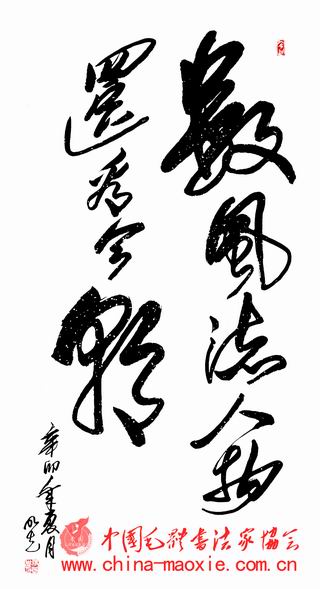 數風流人物
還看今朝
辛卯年夏月
中国毛體书法家協会
www.china-maoxie.com.cn